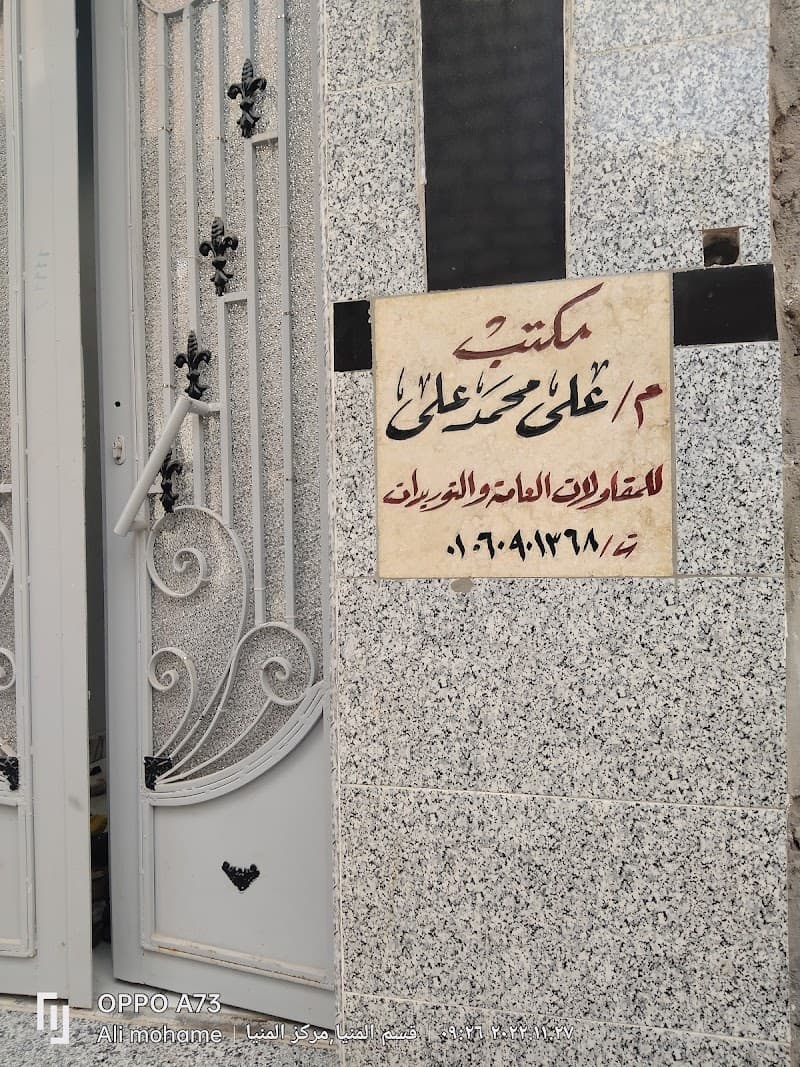 مكتب
م/ على محمد على
للمقاولات العامة والتوريدات
ت/ ٠١٠٦٠٩٠١٣٦٨
OPPO A73
Ali mohame | قسم المنيا,مركز المنيا | ٢٠٢٢.١١.٢٧ ٠٩:٢٦